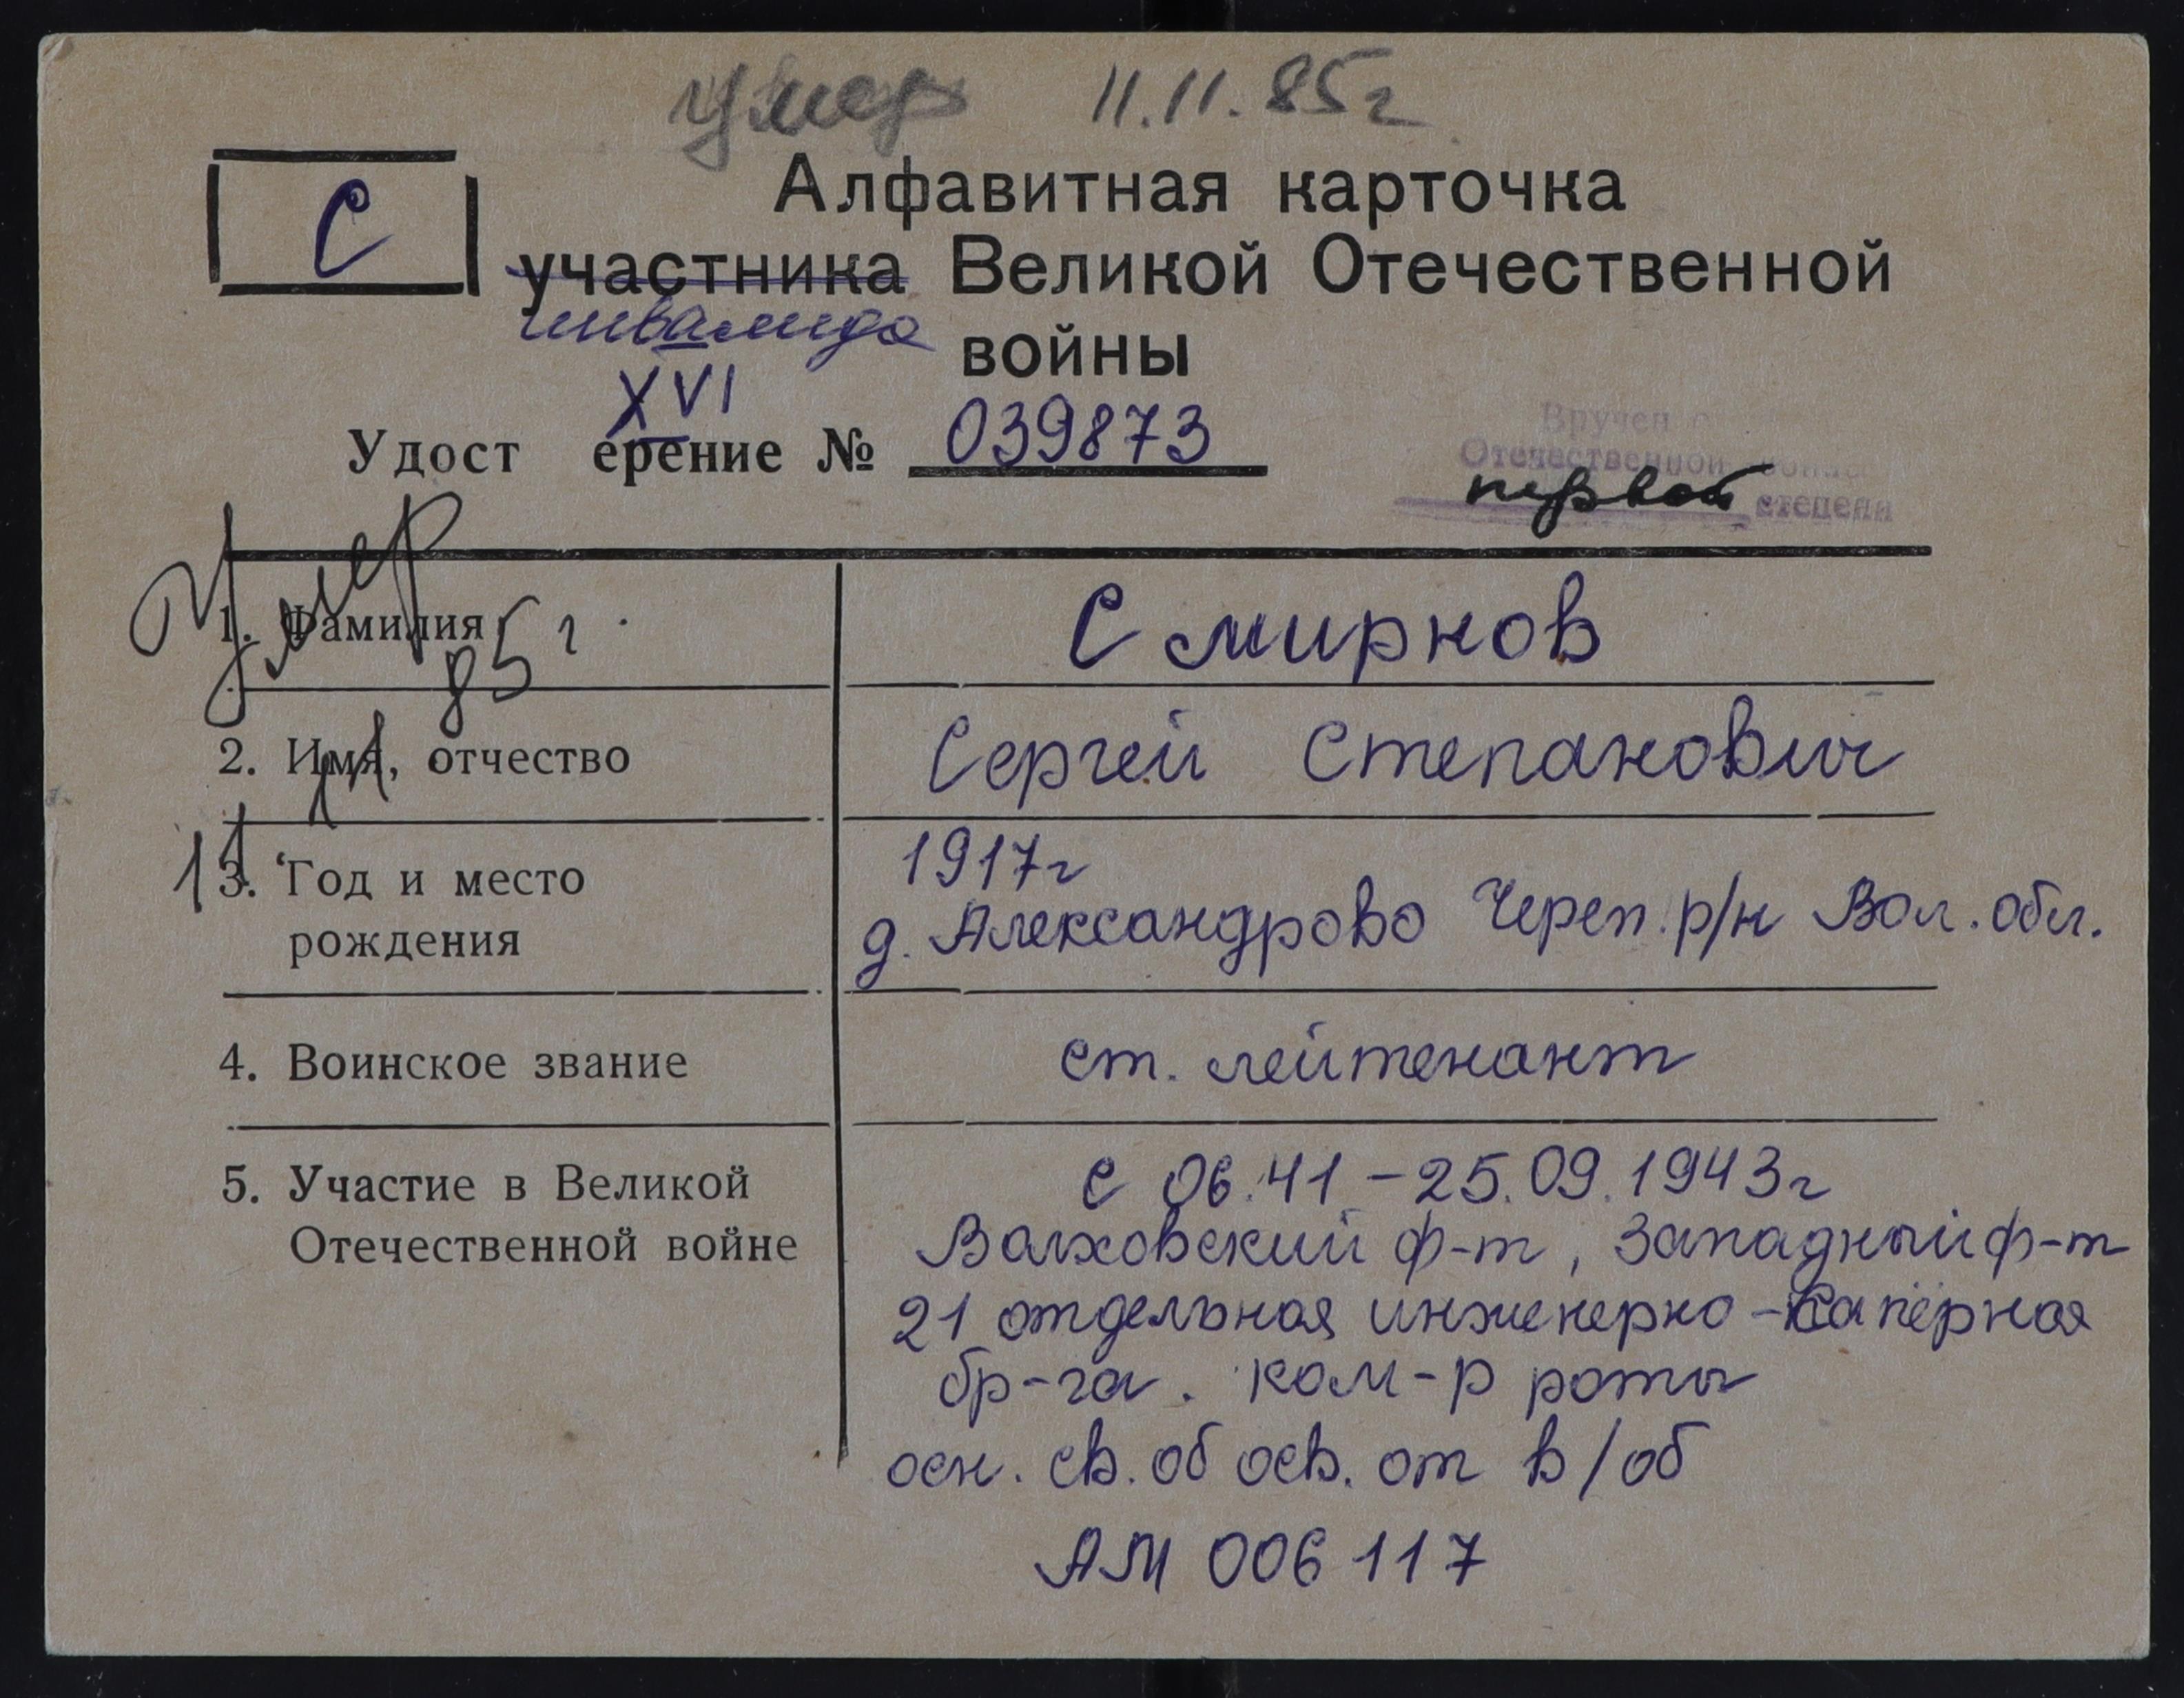 умер 11.11.85г
С
Алфавитная карточка
участника Великой Отечественной
инвалида
войны
XVI
Удост ерение № 039873
Вручен
Отечественной войны
первой степени
Умер
1. Фамилия
Смирнов
85 г.
2. Имя, отчество
Сергей Степанович
11
11
3. Год и место
рождения
1917г
д. Александрово Череп. р/н Вол. обл.
4. Воинское звание
ст. лейтенант
5. Участие в Великой
Отечественной войне
С 06.41 - 25.09.1943г
Волховский ф-т, Западный ф-т
21 отдельная инженерно-сапёрная
бр-га. ком-р роты
осн. св. об осв. от в/об
АМ 006117